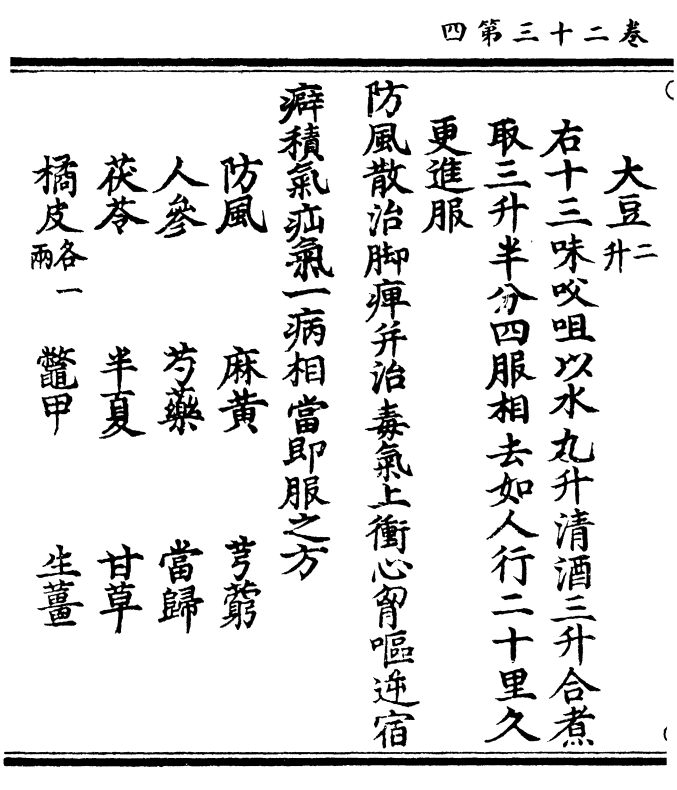 卷二十三第四
大豆二升
右十三味㕮咀以水丸升清酒三升合煮
取三升半分四服相去如人行二十里久
更進服
防風散治脚痺并治毒氣上衝心胷嘔逆宿
癖積氣疝氣一病相當即服之方
防風 麻黄 芎藭
人參 芍藥 當歸
茯苓 半夏 甘草
橘皮各一兩 鼈甲 生薑